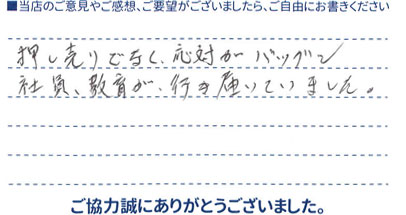 ■当店のご意見やご感想、ご要望がございましたら、ご自由にお書きください
押し売りでなく、応対がバツグン
社員、教育が、行き届いていました。
ご協力誠にありがとうございました。